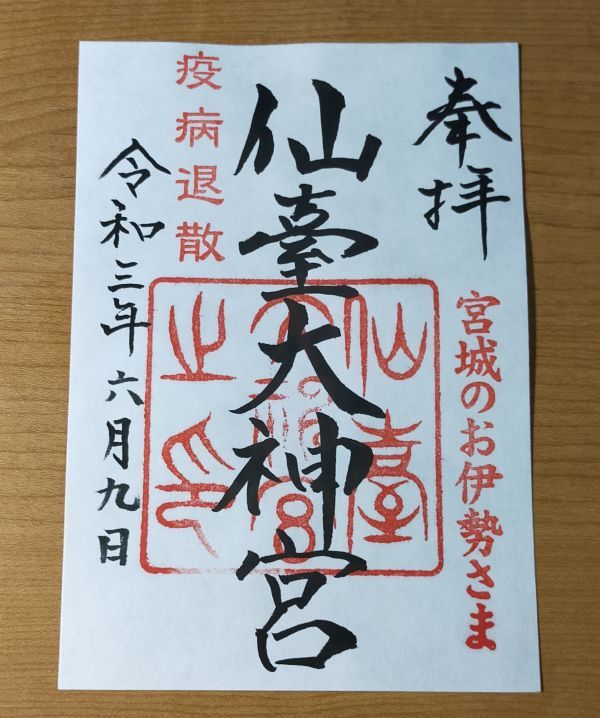 奉拝
宮城のお伊勢さま
仙臺大神宮
仙臺
大神宮
之印
疫病退散
令和三年六月九日